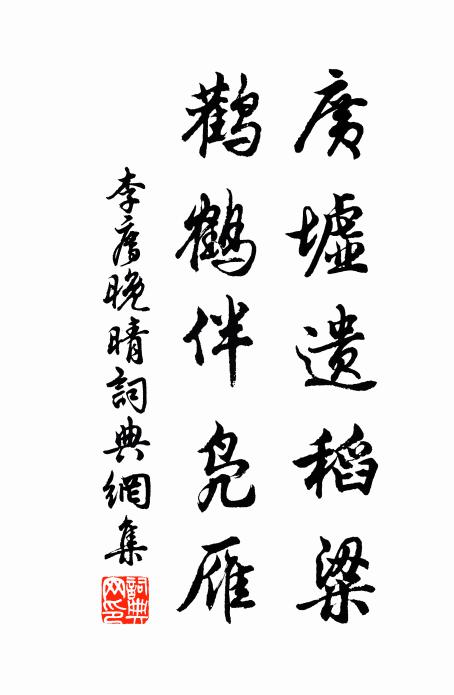 廣墟遺稻粱
鸛鶴伴鳧雁
李廌晚晴詞典網集
詞典網印